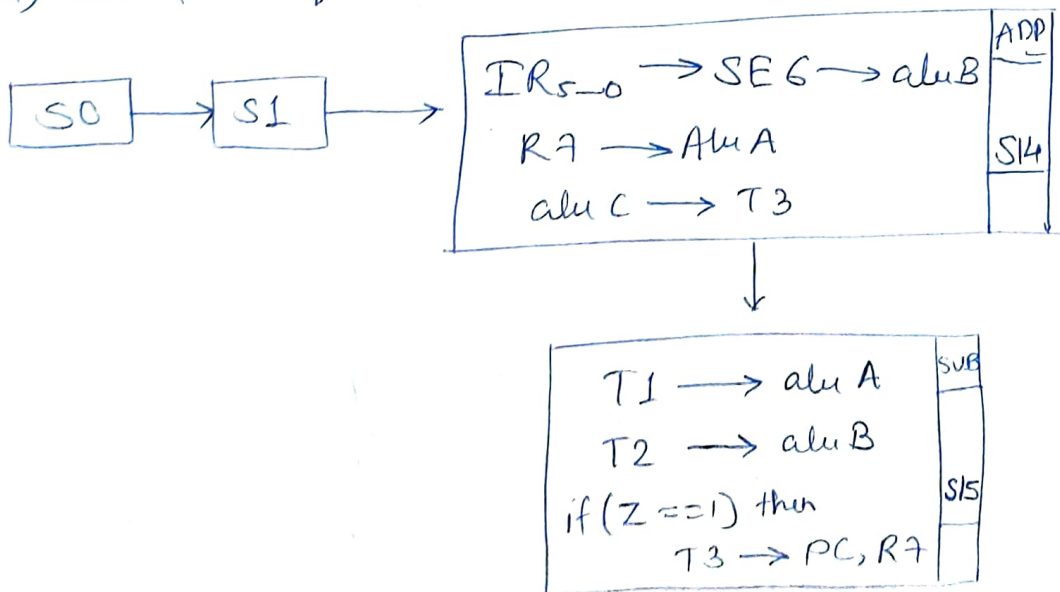 S0
S1
IR5-0 → SE6 → aluB
R7 → Alu A
alu C → T3
ADD
S14
T1 → alu A
T2 → alu B
if (Z ==1) then
T3 → PC, R7
SUB
S15